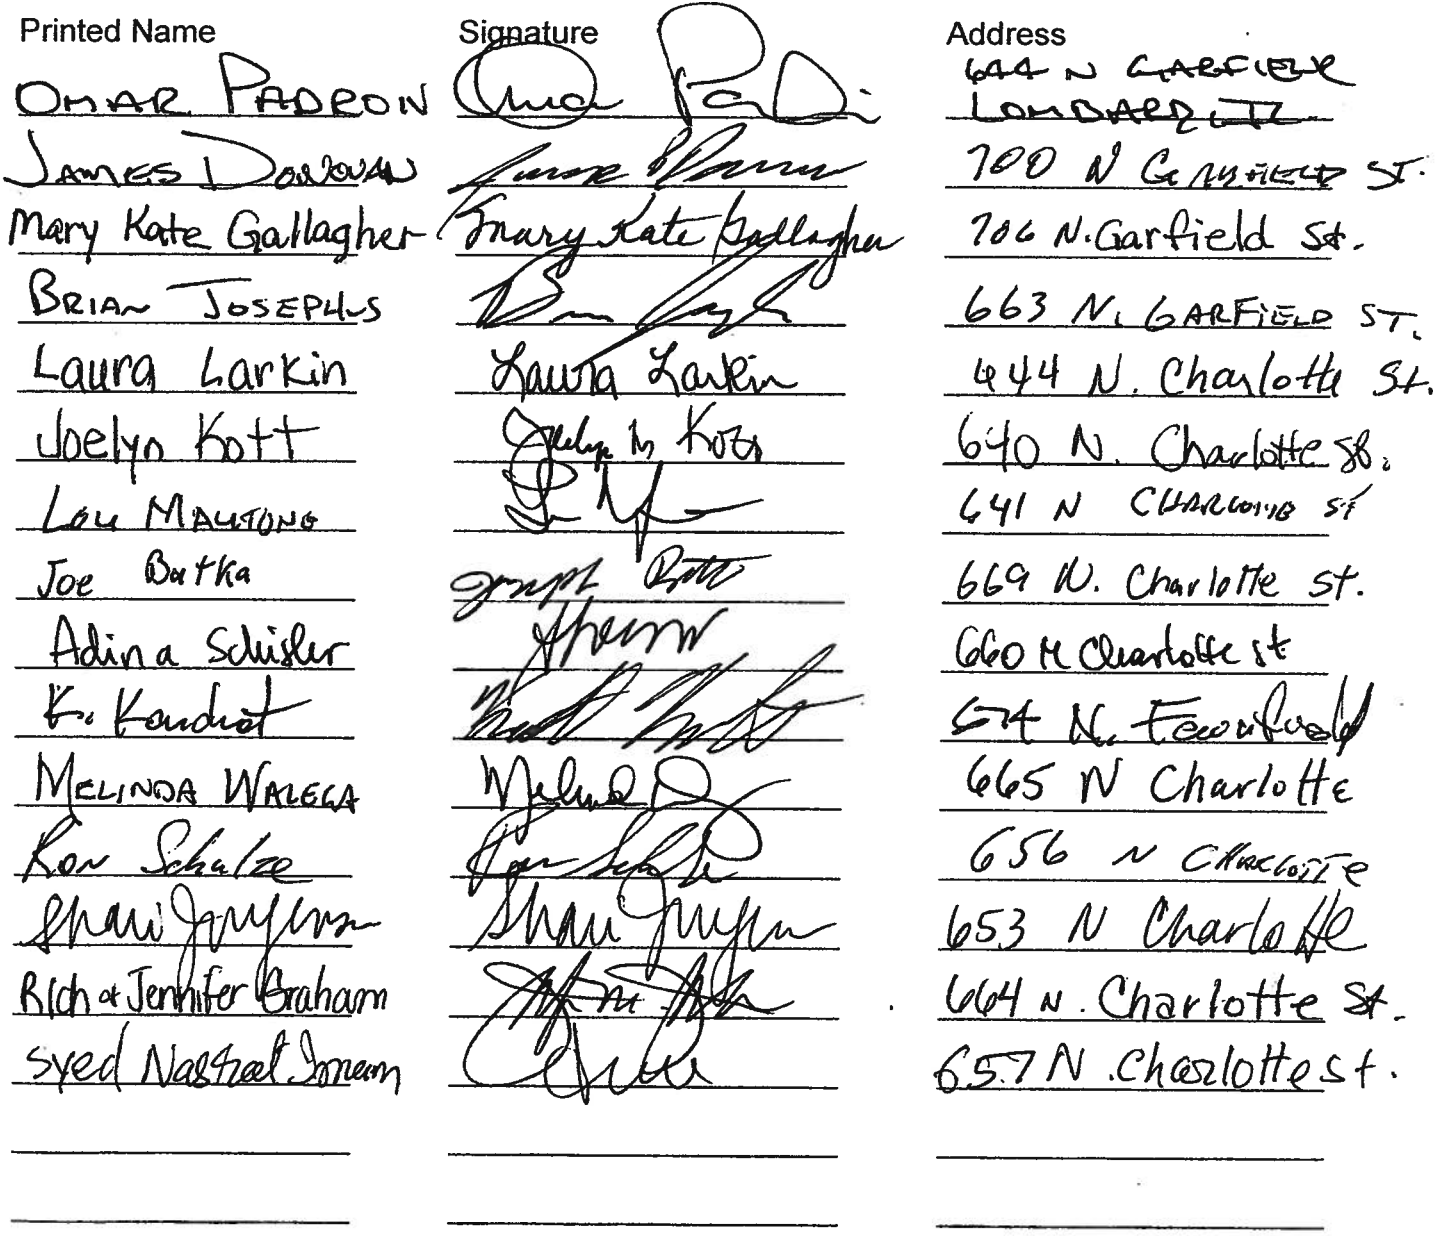 Printed Name Signature Address
OMAR PADRON Omar 644 N GARFIELD
LOMBARD, IL
JAMES DONOVAN 700 N GARFIELD ST.
Mary Kate Gallagher Mary Kate Gallagher 706 N. Garfield St.
BRIAN JOSEPHUS 663 N. GARFIELD ST.
Laura Larkin Laura Larkin 444 N. Charlotte St.
Joelyn Kott 640 N. Charlotte St.
Lou 641 N CHARLOTTE ST
Joe Batka Joseph 669 N. Charlotte St.
Adina Schisler 660 N Charlotte st
K. Kondrat 574 N.
MELINDA WALEGA 665 N Charlotte
Ron Schulze Ron 656 N CHARLOTTE
Shari Shari 653 N Charlotte
Rich & Jennifer Graham 664 N. Charlotte St.
Syed Imam 657 N. Charlotte st.